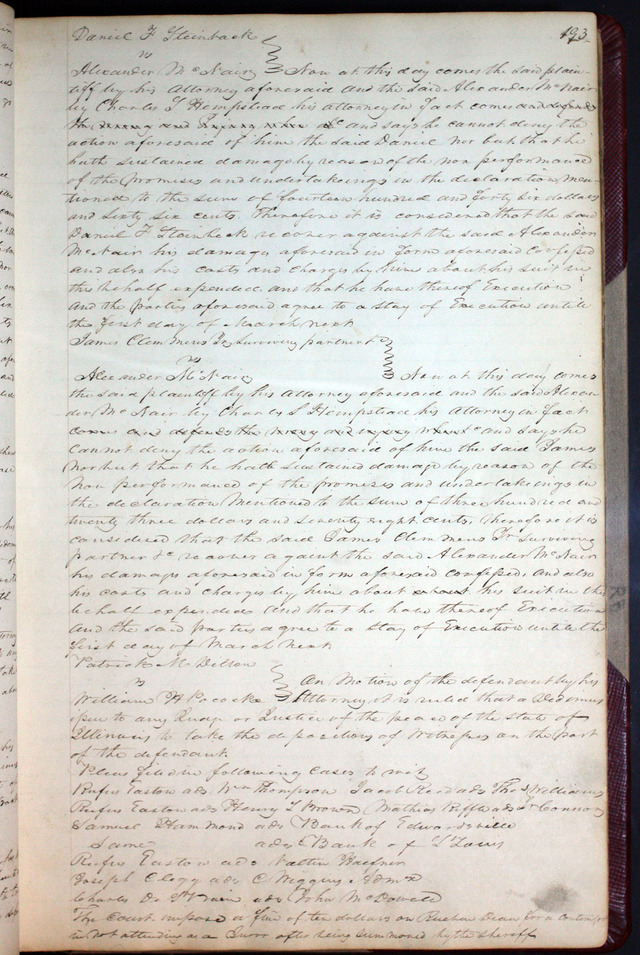 193
Daniel F Steinback
vs
Alexander McNair } Now at this day comes the said plain-
tiff by his Attorney aforesaid and the said Alexander McNair
by Charles S Hempstead his attorney in fact comes and defends
the wrong and Injury when &c and says he cannot deny the
action aforesaid of him the said Daniel nor but that he
hath sustained damage by reason of the non performance
of the Promises and undertakings in the declaration men-
tioned to the sum of fourteen hundred and forty six dollars
and sixty six cents. Therefore it is considered that the said
Daniel F Steinbeck recover against the said Alexander
McNair his damages aforesaid in form aforesaid confessed
and also his costs and charges by him about his suit in
this behalf expended and that he have thereof Execution
And the parties aforesaid agree to a stay of Execution untill
the first day of March next
James Clemmens Jr surviving partner &c
vs
Alexander McNair } Now at this day comes
the said plaintiff by his Attorney aforesaid and the said Alexan
der McNair by Charles S Hempstead his Attorney in fact
comes and defends the wrong and injury when &c and says he
cannot deny the action aforesaid of him the said James
nor but that he hath sustained damage by reason of the
non performance of the promises and undertakings in
the declaration mentioned to the sum of three hundred and
twenty three dollars and seventy eight cents, Therefore it is
considered that the said James Clemmens Jr surviving
partner &c recover against the said Alexander McNair
his damages aforesaid in form aforesaid confessed, and also
his costs and charges by him about his suit in this
behalf expended And that he have thereof Execution
And the said Parties agree to a stay of Execution untill the
first day of March next
Patrick McDillon
vs
William H Pococke } On Motion of the defendant by his
Attorney it is ruled that a Dedimus
issue to any Judge or Justice of the peace of the state of
Illinois to take the depositions of Witnesses on the part
of the defendant
Pleas filed in following cases to wit
Rufus Easton ads Wm Thompson Jacob ads Thos Williams
Rufus Easton ads Henry S Brown Mathias ads Connor
Samuel Hammond ads Bank of Edwardsville
Same ads Bank of St Louis
Rufus Easton ads
Joseph Clegg ads C Wiggins Admx
Charles De ads John McDowell
The Court impose a fine of ten dollars on Reuben Dean for a contempt
in not attending as a Juror after being summoned by the sheriff